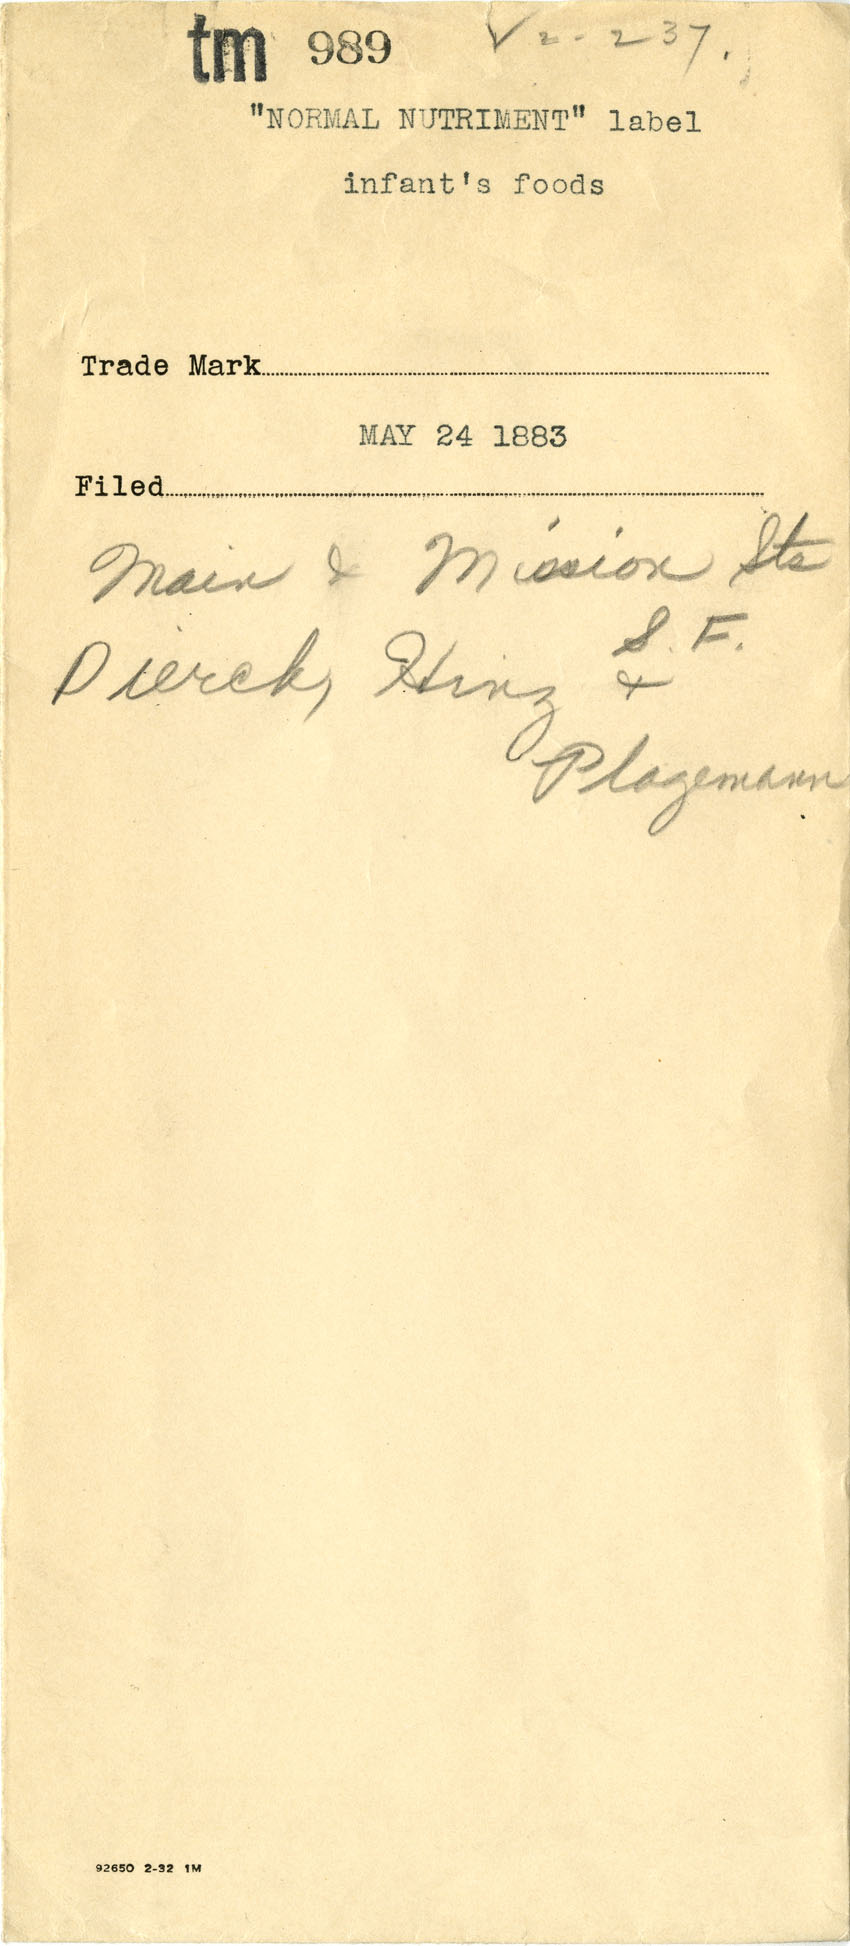 tm 989 V 2-237.
"NORMAL NUTRIMENT" label
infant's foods
Trade Mark
MAY 24 1883
Filed
Main & Mission Sts
S. F.
Dierck, Hinz &
Plagemann
92650 2-32 1M